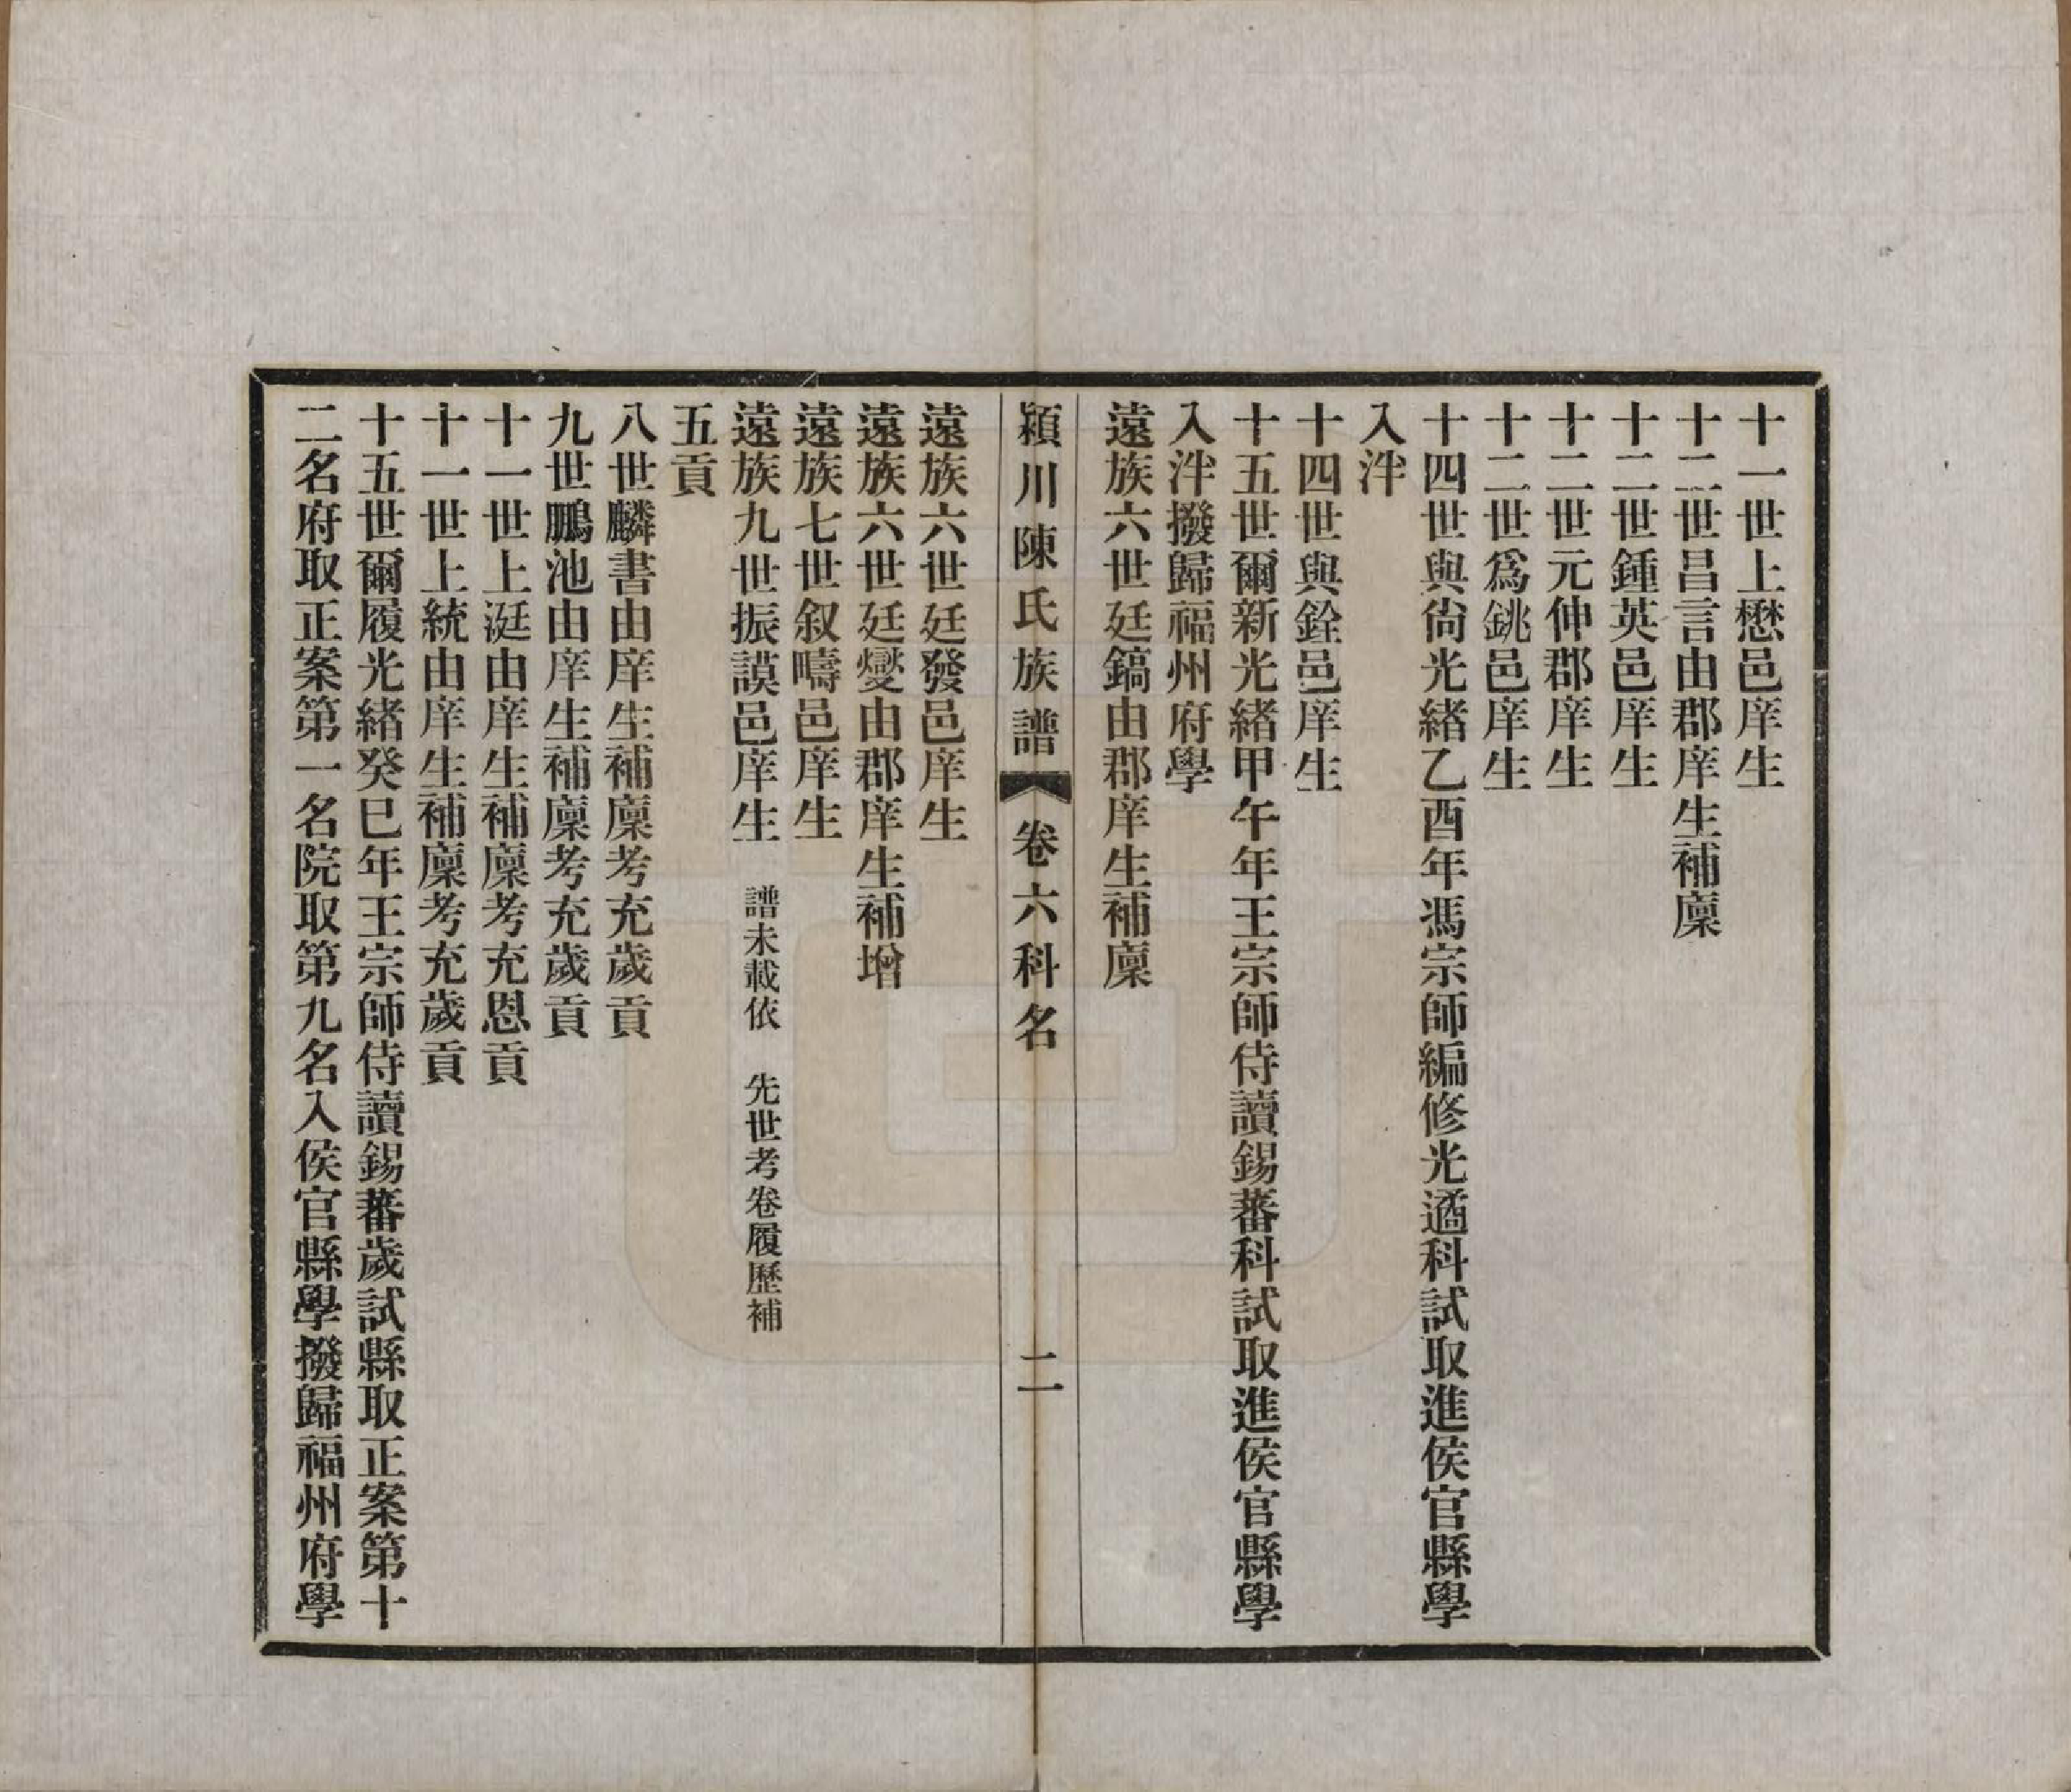 十一世上懋邑庠生
十二世昌言由郡庠生補廩
十二世鍾英邑庠生
十二世元伸郡庠生
十二世爲銚邑庠生
十四世與尙光緒乙酉年馮宗師編修光遹科試取進侯官縣學
入泮
十四世與銓邑庠生
十五世爾新光緒甲午年王宗師侍讀錫蕃科試取進侯官縣學
入泮撥歸福州府學
遠族六世廷鎬由郡庠生補廩
潁川陳氏族譜 卷六科名 二
遠族六世廷發邑庠生
遠族六世廷燮由郡庠生補增
遠族七世叙疇邑庠生
遠族九世振謨邑庠生 譜未載依 先世考卷履歷補
五貢
八世麟書由庠生補廩考充歲貢
九世鵬池由庠生補廩考充歲貢
十一世上涏由庠生補廩考充恩貢
十一世上統由庠生補廩考充歲貢
十五世爾履光緒癸巳年王宗師侍讀錫蕃歲試縣取正案第十
二名府取正案第一名院取第九名入侯官縣學撥歸福州府學